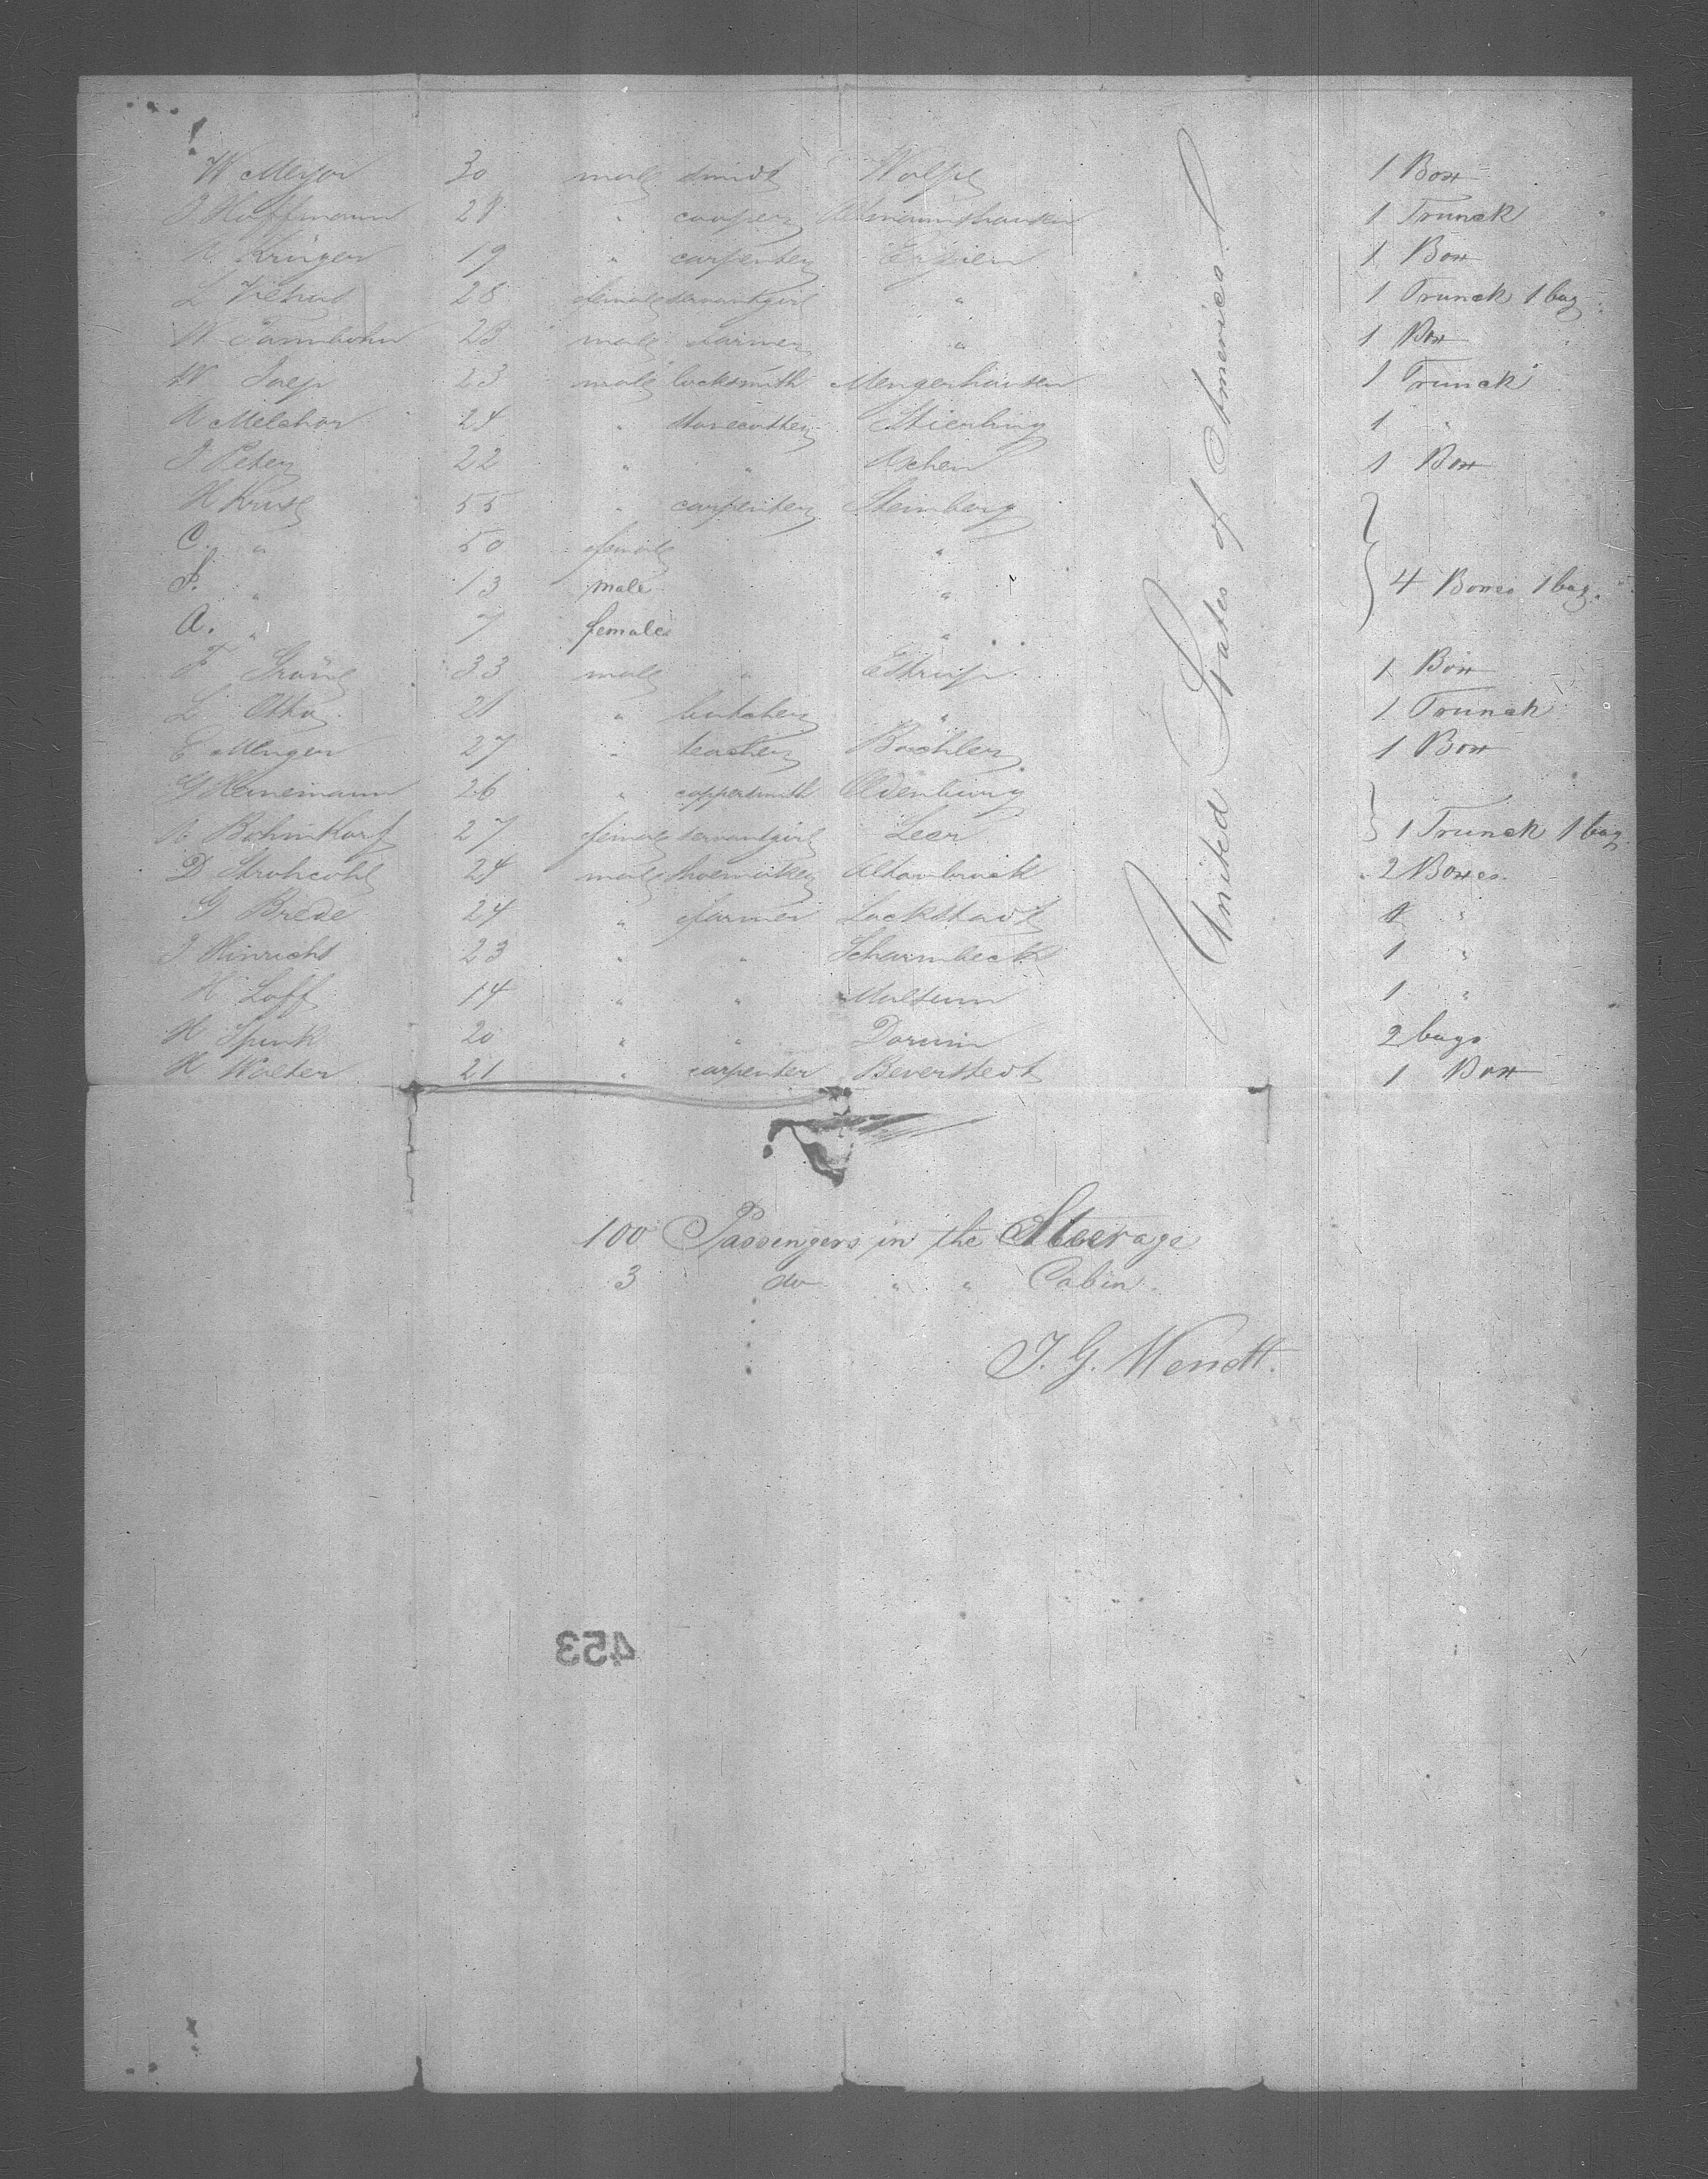 W Meyer 30 male smidt Wölpe 1 Box
J Hoffmann 28 " cooper 1 Trunck
H Krüger 19 " carpenter 1 Box
L 28 female servantgirl " 1 Trunck 1 bag
W Tannbohn 23 male farmer " 1 Box
W Jaep 23 male locksmith Mengerhausen 1 Trunck
A Melchior 24 " stonecutter Stierberg 1 "
J Peter 22 " " Achen 1 Box
H Kruse 55 " carpenter Steinberg
C. " 50 female "
F. " 13 male " 4 Boxes 1 bag.
A. " 7 female "
F 33 male " Estrup. 1 Box
L Otto 21 " butcher " 1 Trunck
C Menger 27 " teacher 1 Box
G Heinemann 26 " coppersmith Oldenburg
A. Bohmkorf 27 female servantgirl Leer 1 Trunck 1 bag
D Strohcohl 24 male shoemaker Altonbruck 2 Boxes.
G Brede 24 " farmer Lackstadt 1 "
J Hinrichs 23 " " Scharmbeck 1 "
H Loff 14 " " Mulsum 1 "
H Spink 20 " " Dorum 2 bags
H Wolter 21 " carpenter Beverstedt 1 Box
United States of America
100 Passengers in the Steerage
3 do " " Cabin.
J. G. Wendt.
453